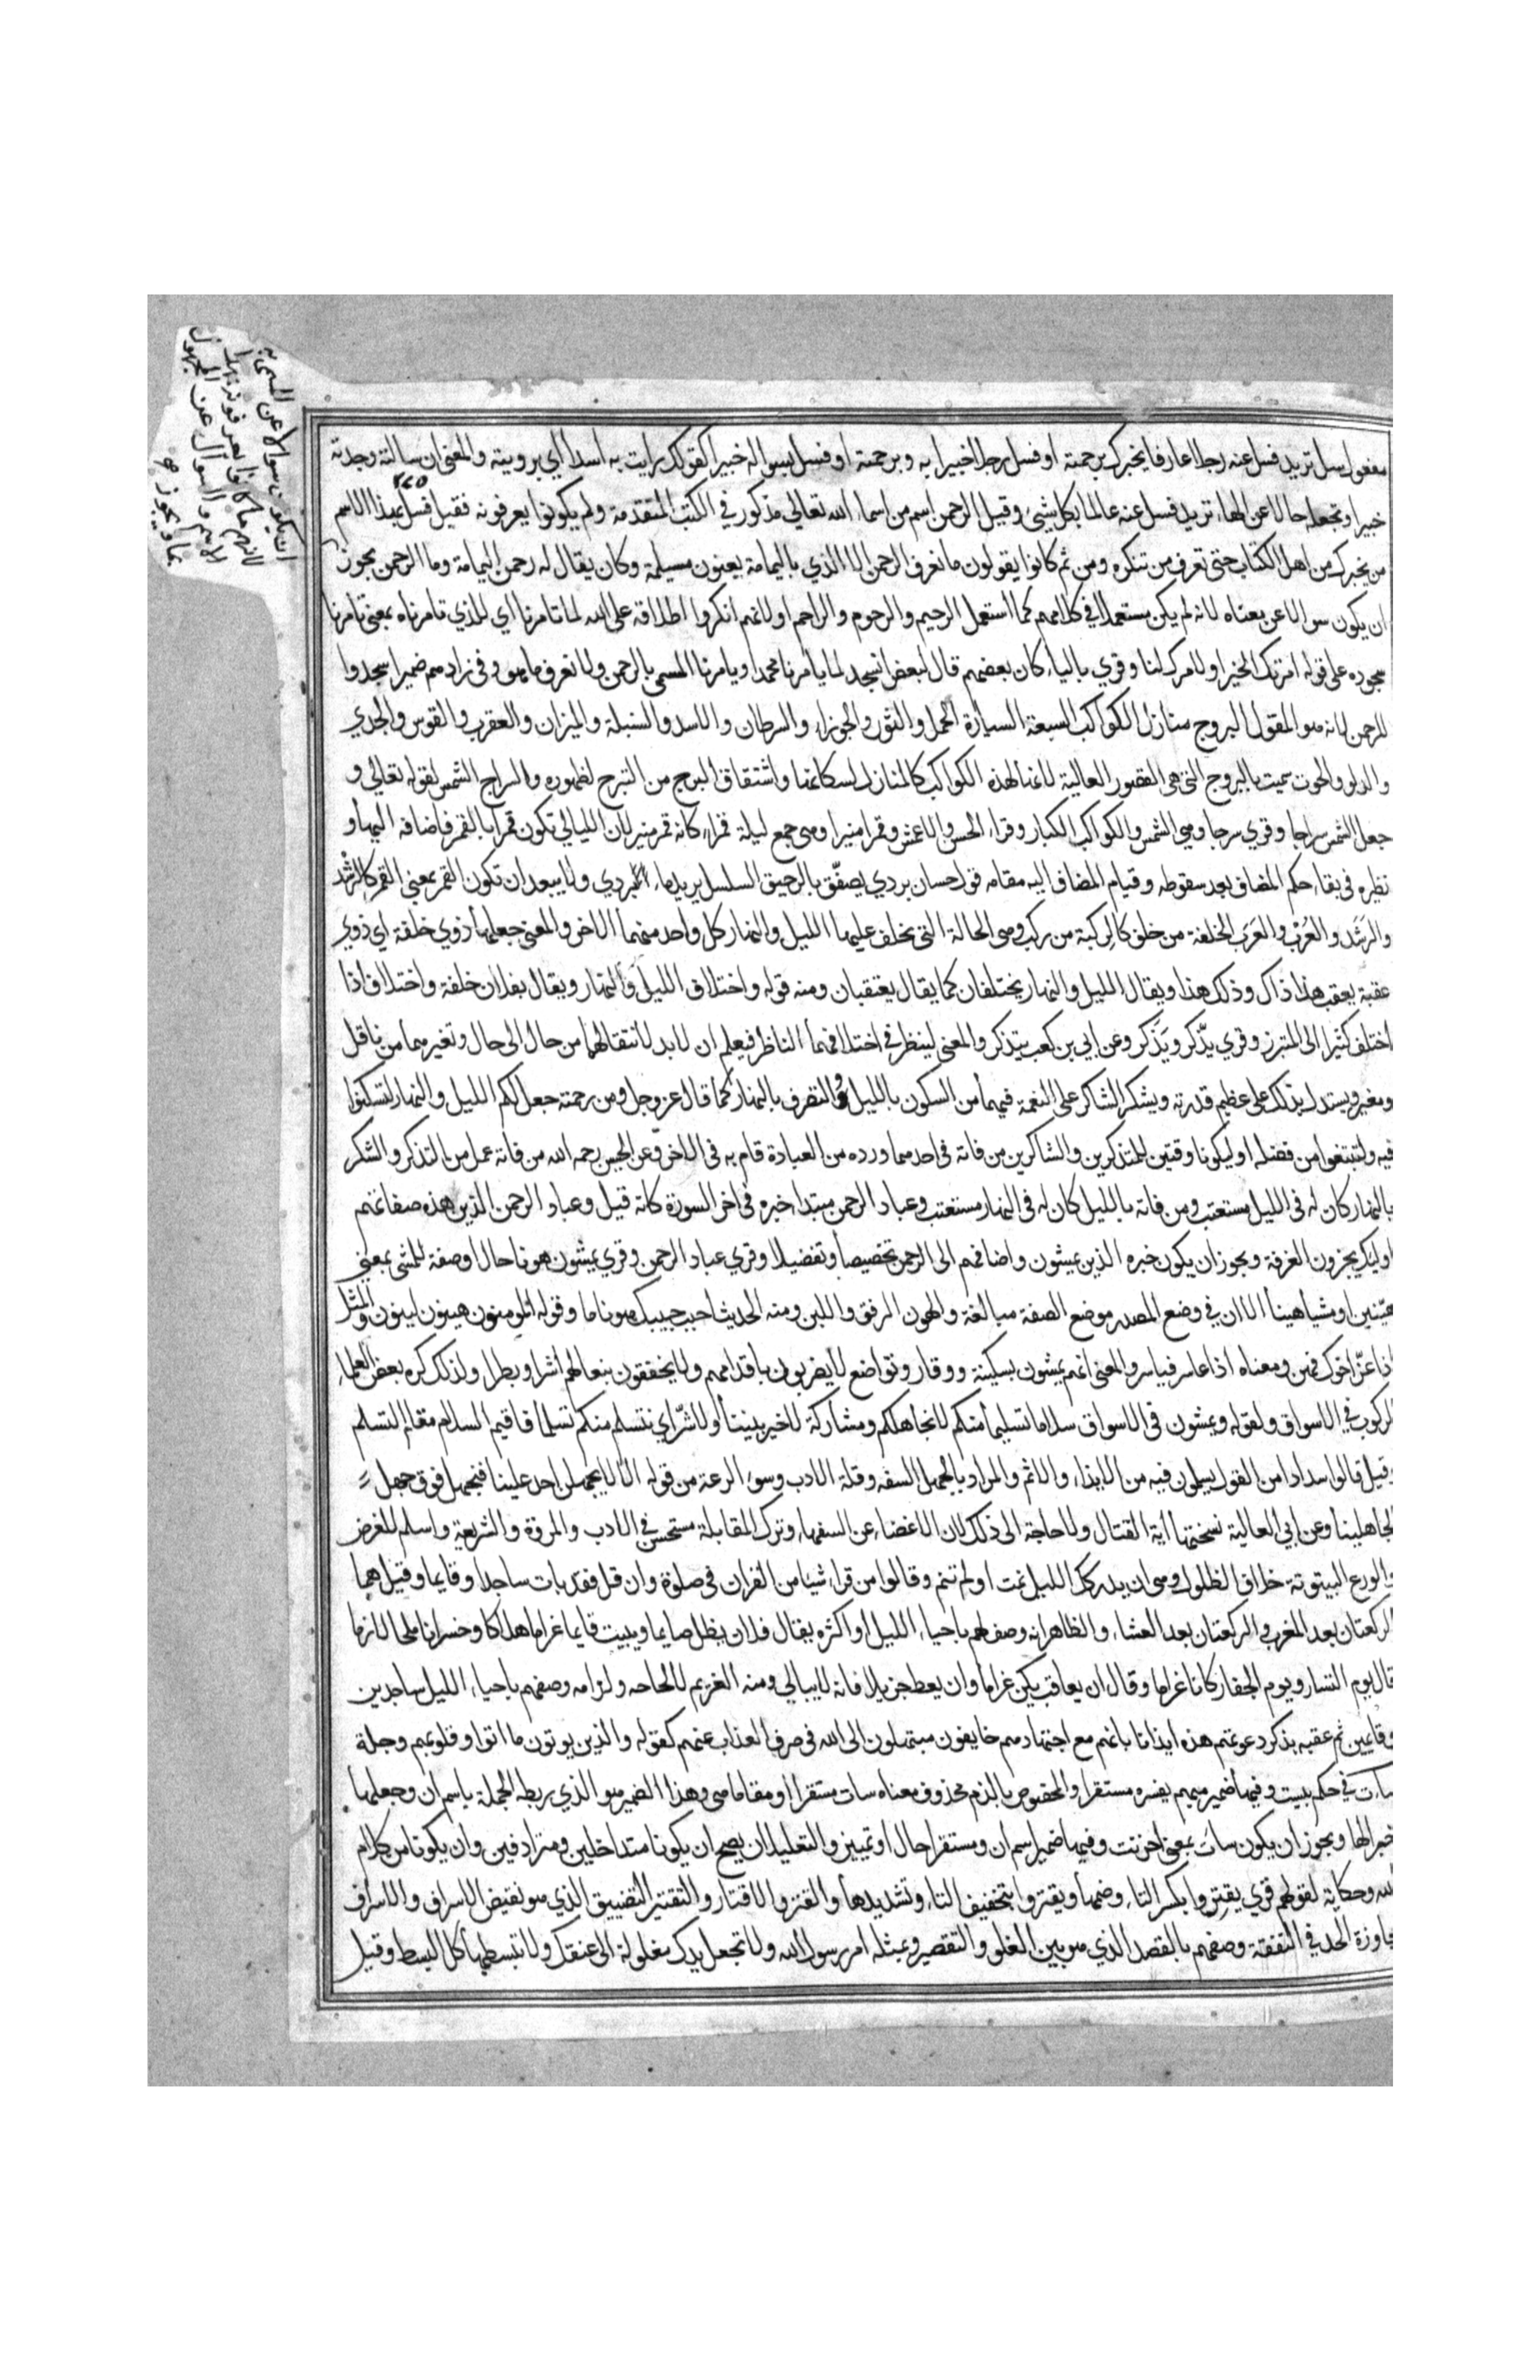 مفعول سل تريد فسل عنه رجلا عارفا يخبرك برحمته او فسل رجلا خبيرا به وبرحمته او فسل بسواله خبيرا كقولك رايت به اسدا اي برويته والمعنى ان سالته وجدته
خبيرا وتجعله حالا عن الهاء تريد فسل عنه عالما بكل شيئ وقيل الرحمن اسم من اسماء الله تعالى مذكور في الكتب المتقدمة ولم يكونوا يعرفونه فقيل فسل بهذا الاسم
من يخبرك من اهل الكتاب حتى تعرف من تنكره ومن ثم كانوا يقولون ما نعرف الرحمن الا الذي باليمامة يعنون مسيلمة وكان يقال له رحمن اليمامة وما الرحمن يجوز
ان يكون سوالا عن معناه لانه لم يكن مستعملا في كلامهم كما استعمل الرحيم والرحوم والراحم او لانهم انكروا اطلاقه على الله لما تامرنا اي للذي تامرناه بمعنى تامرنا
سجوده على قوله امرتك الخير او لامرك لنا وقري بالياء كان بعضهم قال لبعض انسجد لما يامرنا محمد او يامرنا المسمى بالرحمن ولا نعرف ما هو وفي زادهم ضمير اسجدوا
للرحمن لانه هو المقول البروج منازل الكواكب السبعة السيارة الحمل والثور والجوزاء والسرطان والاسد والسنبلة والميزان والعقرب والقوس والجدي
والدلو والحوت سميت بالبروج التي هي القصور العالية لانها لهذه الكواكب كالمنازل لسكانها واشتقاق البرج من التبرج لظهوره والسراج الشمس لقوله تعالى و
جعل الشمس سراجا وقري سرجا وهي الشمس والكواكب الكبار وقراء الحسن والاعمش وقمرا منيرا وهي جمع ليلة قمراء كانه قمر منير لان الليالي تكون قمرا بالقمر فاضافه اليها و
نظيره في بقاء حكم المضاف بعد سقوطه وقيام المضاف اليه مقامه قول حسان بردي يصفّق بالرحيق السلسل يريد ماء بردي ولا يبعد ان تكون القمر بمعنى القمر كالرشد
والرشد والعُرب والعرب الخلفة من خلف كالركبة من ركب وهي الحالة التي يخلف عليها الليل والنهار كل واحد منهما الاخر والمعنى جعلهما ذوي خلفة اي ذوي
عقبة يعقب هذا ذاك وذلك هذا ويقال الليل والنهار يختلفان كما يقال يعتقبان ومنه قوله واختلاف الليل والنهار ويقال بفلان خلفة واختلاف اذا
اختلف كثيرا الى المتبرز وقري يذّكر ويذكر وعن ابي بن كعب يتذكر والمعنى لينظر في اختلافهما الناظر فيعلم ان لا بد لانتقالهما من حال الى حال وتغيرهما من ناقل
ومغير ويستدل بذلك على عظيم قدرته ويشكر الشاكر على النعمة فيهما من السكون بالليل والتصرف بالنهار كما قال عز وجل ومن رحمته جعل لكم الليل والنهار لتسكنوا
فيه ولتبتغوا من فضله او ليكونا وقتين للمتذكرين والشاكرين من فاته في احدهما ورده من العبادة قام به في الاخر وعن الحسن رحمه الله من فاته عمل من التذكر والشكر
بالنهار كان له في الليل مستعتب ومن فاته بالليل كان له في النهار مستعتب وعباد الرحمن مبتدا خبره في اخر السورة كانه قيل وعباد الرحمن الذين هذه صفاتهم
اوليك يجزون الغرفة ويجوز ان يكون خبره الذين يمشون واضافهم الى الرحمن تخصيصا وتفضيلا وقري عباد الرحمن وقري يمشون هونا حال او صفة للمشي بمعنى
هيّنين او مشيا هينا الا ان في وضع المصدر موضع الصفة مبالغة والهون الرفق واللين ومنه الحديث احبب حبيبك هونا ما وقوله المومنون هينون لينون والمثل
اذا عزّ اخوك فهن ومعناه اذا عاسر فياسر والمعنى انهم يمشون بسكينة ووقار وتواضع لا يضربون باقدامهم ولا يخفقون بنعالهم اشرا وبطرا ولذلك كره بعض العلماء
الركوب في الاسواق ولقوله ويمشون في الاسواق سلاما تسليما منكم لا نجاهلكم ومشاركة لا خير بيننا ولا شرّ اي نتسلم منكم تسلما فاقيم السلام مقام التسلم
وقيل قالوا سدادا من القول يسلمون فيه من الايذاء والاثم والمراد بالجهل السفه وقلة الادب وسوء الرعة من قوله الا لا يجهلن احد علينا فنجهل فوق جهل
الجاهلينا وعن ابي العالية نسختها اية القتال ولا حاجة الى ذلك لان الاغضاء عن السفهاء وترك المقابلة مستحسن في الادب والمروة والشريعة واسلم للعرض
والورع البيتوتة خلاف الظلول وهي ان يدركك الليل نمت او لم تنم وقالوا من قراء شيئا من القران في صلوة وان قل فقد بات ساجدا وقايما وقيل هما
الركعتان بعد المغرب والركعتان بعد العشاء والظاهر انه وصف لهم باحياء الليل او اكثره يقال فلان يظل صايما ويبيت قايما غراما هلاكا وخسرانا ملحا لازما
قال يوم النسار ويوم الجفار كانا غراما وقال ان يعاقب يكن غراما وان يعط جزيلا فانه لا يبالي ومنه الغريم لالحاحه ولزامه وصفهم باحياء الليل ساجدين
وقايمين ثم عقبه بذكر دعوتهم هذه ايذانا بانهم مع اجتهادهم خايفون مبتهلون الى الله في صرف العذاب عنهم كقوله والذين يوتون ما اتوا وقلوبهم وجلة
ساءت في حكم بيست وفيها ضمير مبهم يفسره مستقرا والمخصوص بالذم محذوف معناه ساءت مستقرا ومقاما هي وهذا الضمير هو الذي ربط الجملة باسم ان وجعلها
خبرا لها ويجوز ان يكون ساءت بمعنى احزنت وفيها ضمير اسم ان ومستقرا حال او تمييز والتعليلان يصح ان يكونا متداخلين ومترادفين وان يكونا من كلام
الله وحكاية لقولهم قري يقتروا بكسر التاء وضمها ويقتروا بتخفيف التاء وتشديدها والقتر والاقتار والتقتير التضييق الذي هو نقيض الاسراف والاسراف
مجاوزة الحد في النفقة وصفهم بالقصد الذي هو بين الغلو والتقصير وبمثله امر رسول الله ولا تجعل يدك مغلولة الى عنقك ولا تبسطها كل البسط وقيل
ان يكون سوالا عن المسمى به
لانهم ما كانوا يعرفونه بهذا
الاسم والسوال عن المجهول
بما ويجوز